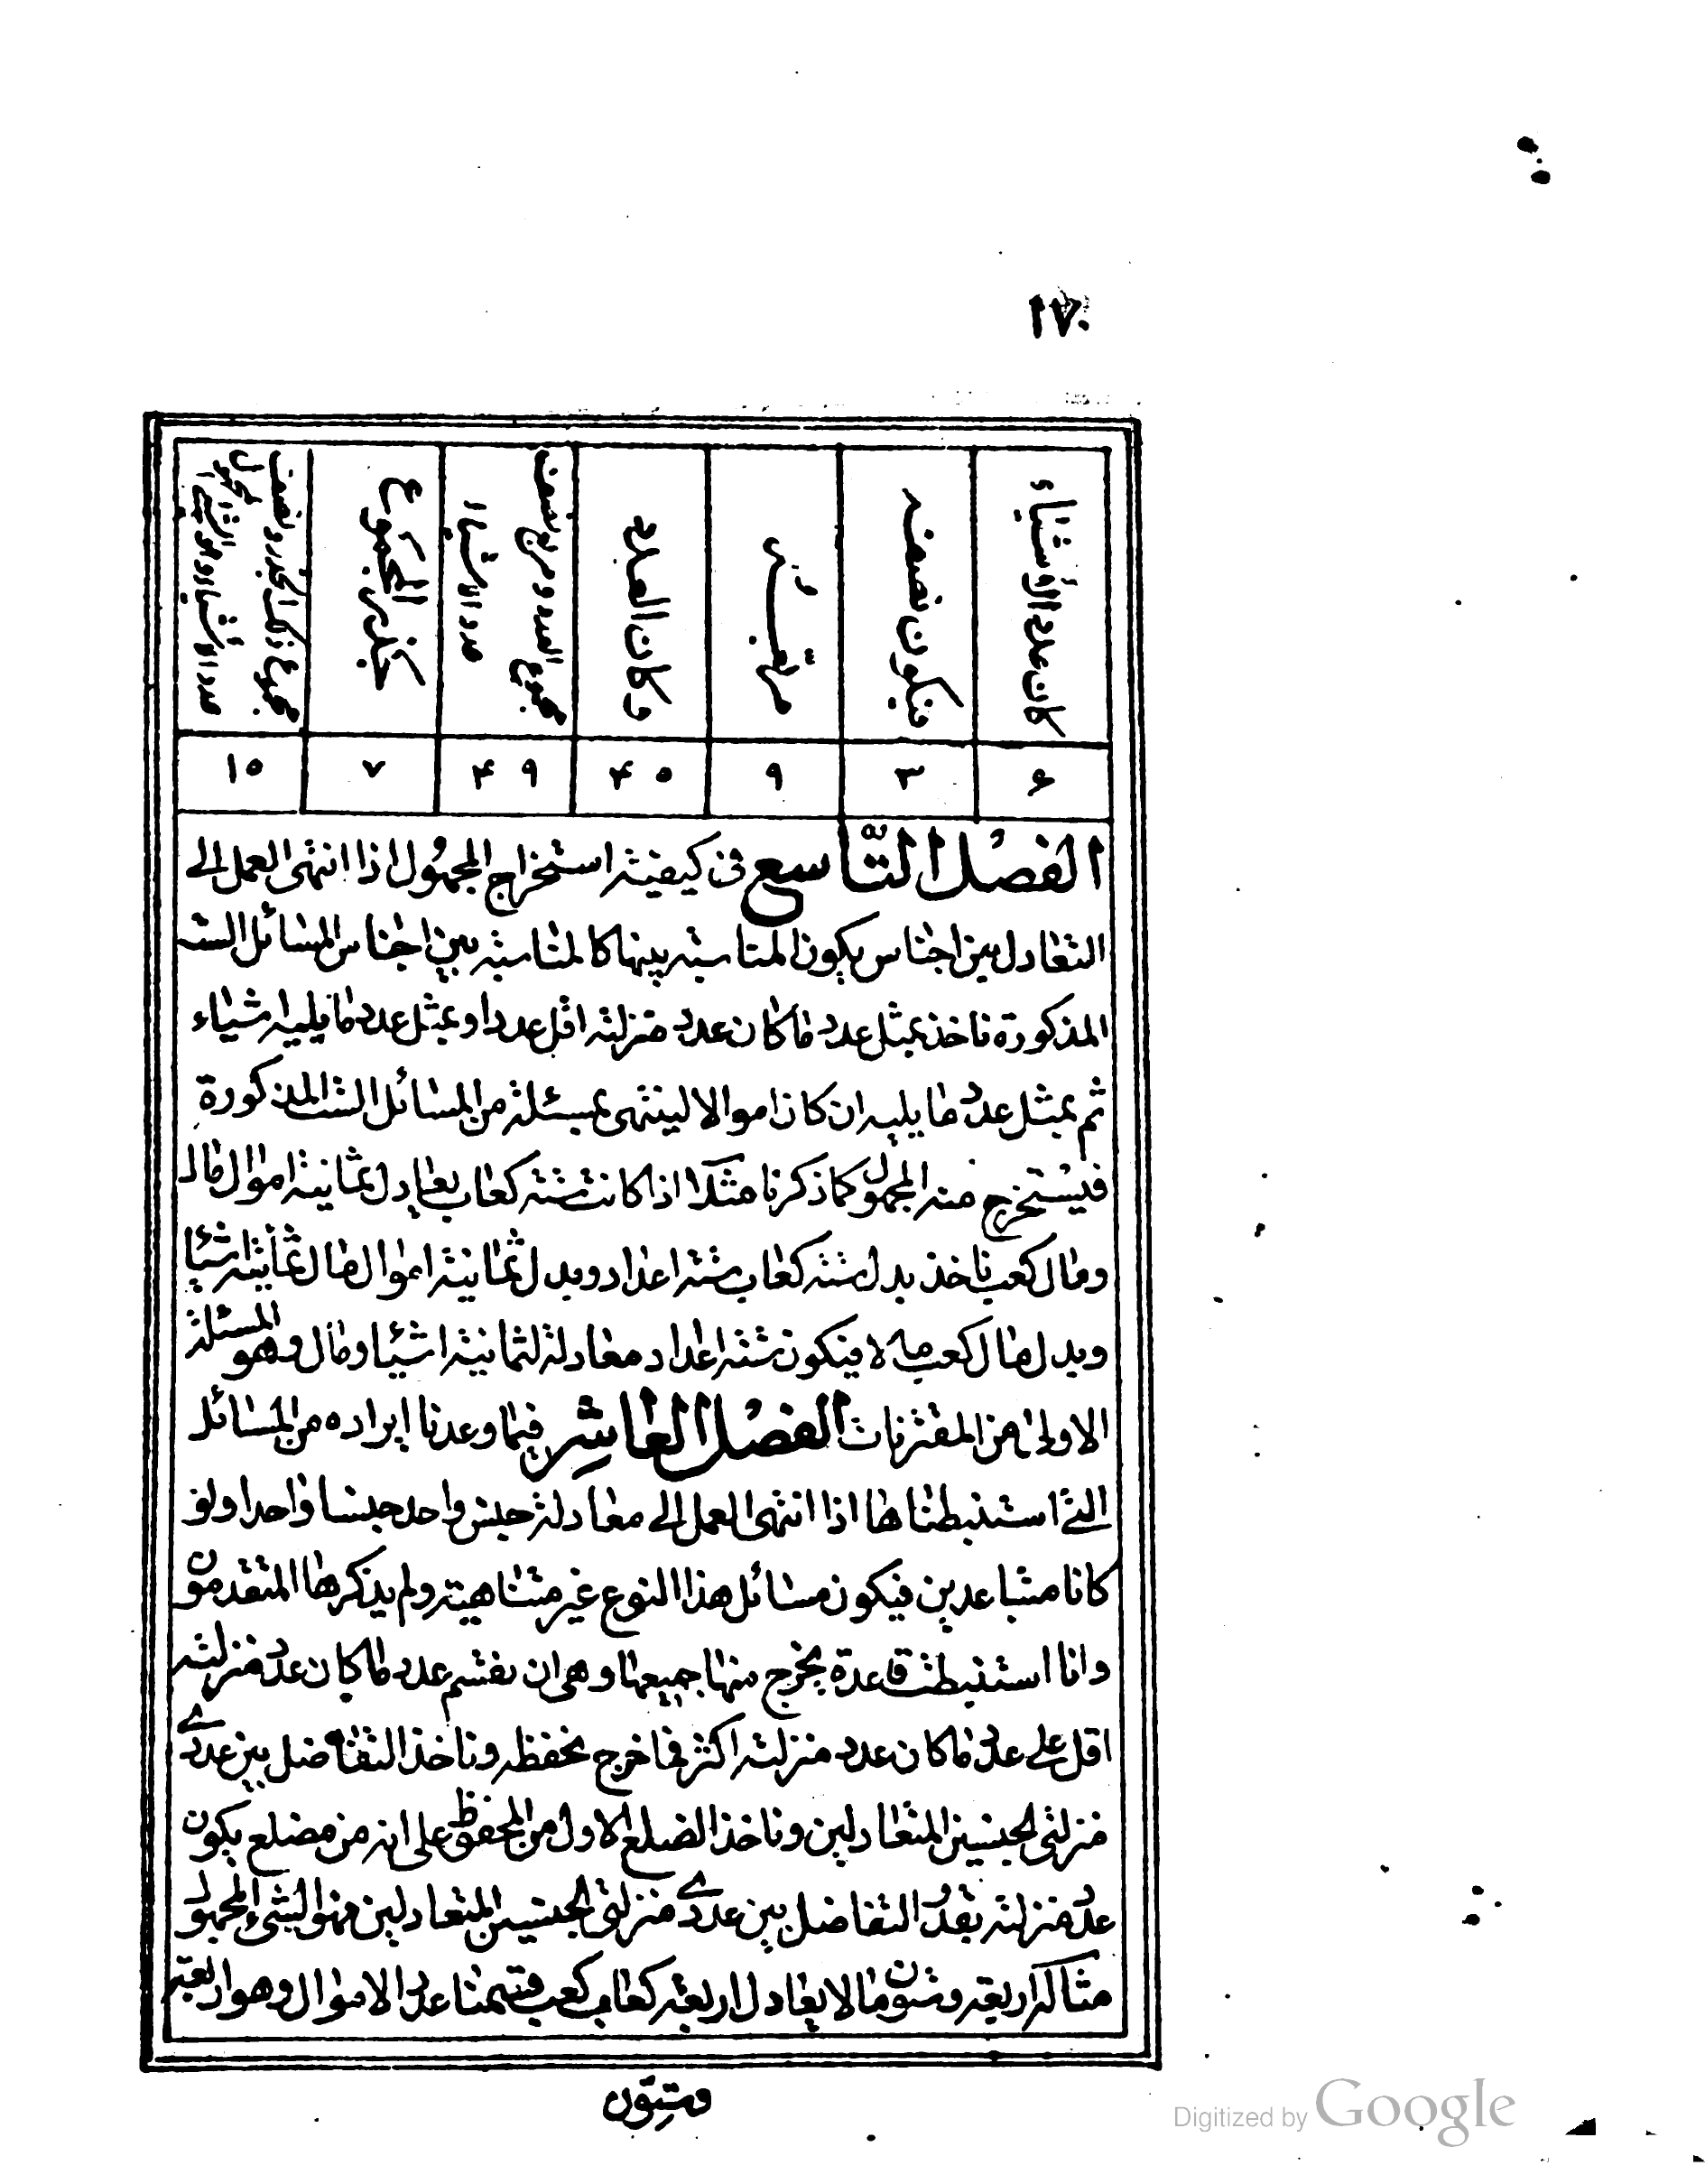 ١٧٠
كان عدد الأشياء
فيكون نصفه
مربعه
وكان العدد
مجموع العدد ومربع نصف
عدد الاشياء
جذر المجموع
مجموع ذلك الجذر ونصف
عدد الاشياء وهو الشيء المجهول
۶
٣
٩
۴٥
۴٩
٧
١٥
الفصل التاسع فى كيفية استخراج المجهول اذا انتهى العمل الى
التعادل بين اجناس يكون المناسبة بينها كالمناسبة بين اجناس المسائل الست
المذكورة ناخذ بمثل عدد ما كان عدد منزلته اقل عددا وبمثل عدد ما يليه اشياء
ثم بمثل عدد ما يليه ان كان اموالا لينتهى بمسئلة من المسائل الست المذكورة
فيستخرج منه المجهول كما ذكرنا مثلا اذا كانت ستة كعاب يعادل ثمانية اموال مال
ومال كعب ناخذ بدل ستة كعاب ستة اعداد وبدل ثمانية اموال مال ثمانية اشيا
وبدل مال كعب مالا فيكون ستة اعداد معادلة لثمانية اشيا ومال وهو المسئلة
الاولى من المقترنات الفصل العاشر فيما وعدنا ايراده من المسائل
التى استنبطناها اذا انتهى العمل الى معادلة جنس واحد جنسا واحدا ولو
كانا متباعدين فيكون مسائل هذا النوع غير متناهية ولم يذكرها المتقدمون
وانا استنبطت قاعدة يخرج منها جميعها وهى ان نقسم عدد ما كان عدد منزلته
اقل على عدد ما كان عدد منزلته اكثر فما خرج نحفظه وناخذ التفاضل بين عددى
منزلتى الجنسين المتعادلين وناخذ الضلع الاول من المحفوظ على انه من مضلع يكون
عدد منزلته بقدر التفاضل بين عددى منزلتى الجنسين المتعادلين فهو الشىء المجهول
مثاله اربعة وستون مالا يعادل اربعة كعاب كعب قسمنا عدد الاموال وهو اربعة
وستون
Digitized by Google